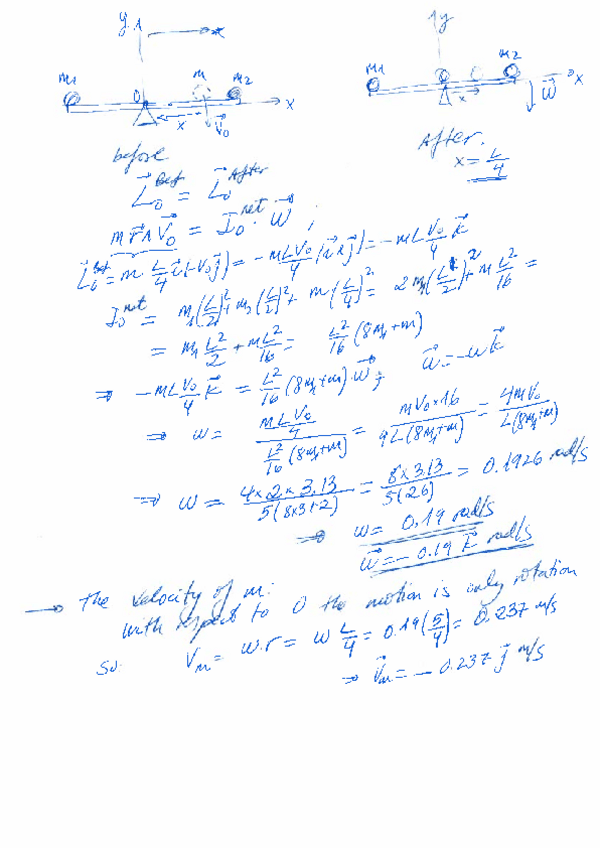 y
x
m1 m m2
O x
x V₀
before
L⃗₀ᴮᵉᶠ = L⃗₀ᴬᶠᵗᵉʳ
y
m1 m2
O x
x ω⃗
After.
x = L/4
m r⃗ ∧ V⃗₀ = I₀ⁿᵉᵗ · ω⃗ ;
L⃗₀ᴮᵉᶠ = m L/4 i⃗ ∧ (-V₀ j⃗) = - mLV₀/4 (i⃗ ∧ j⃗) = - mLV₀/4 k⃗
I₀ⁿᵉᵗ = m₁(L/2)² + m₂(L/2)² + m(L/4)² = 2m₁(L/2)² + m L²/16 =
= m₁ L²/2 + mL²/16 = L²/16 (8m₁+m)
⇒ - mLV₀/4 k⃗ = L²/16 (8m₁+m) ω⃗ ; ω⃗ = -ω k⃗
⇒ ω = (mLV₀/4) / (L²/16 (8m₁+m)) = mV₀×16 / 4L(8m₁+m) = 4mV₀ / L(8m₁+m)
⇒ ω = 4×2×3.13 / 5(8×3+2) = 8×3.13 / 5(26) = 0.1926 rad/s
⇒ ω = 0.19 rad/s
ω⃗ = - 0.19 k⃗ rad/s
→ The velocity of m:
with respect to O the motion is only rotation
so: Vₘ = ω.r = ω L/4 = 0.19(5/4) = 0.237 m/s
⇒ V⃗ₘ = - 0.237 j⃗ m/s